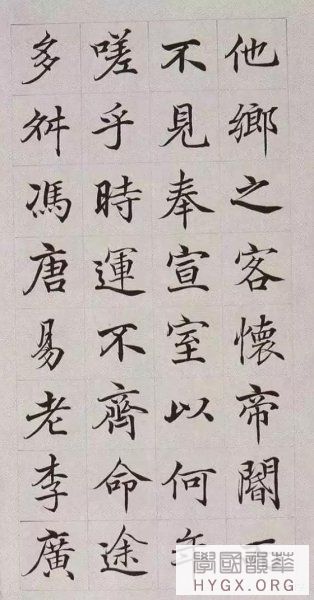 他鄉之客懷帝閽
不見奉宣室以何年
嗟乎時運不齊命途
多舛馮唐易老李廣
學國韻華
HYGX.ORG